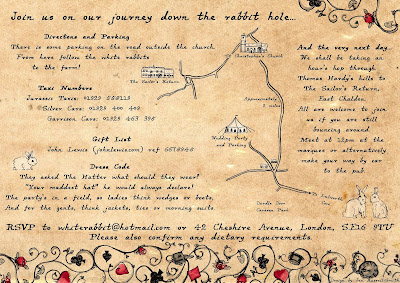 Join us on our journey down the rabbit hole...
Directons and Parking
There is some parking on the road outside the church
From here follow the white rabbits
to the farm!
Taxi Numbers
Jurassic Taxis:
Silver Cars: 01929 400 409
Garrison Cars: 01929 463 395
Gift List
John Lewis (johnlewis.com) ref
Dress Code
They asked The Hatter what should they wear?
"Your maddest hat" he would always declare!
The party's in a field, so ladies think wedges or boots,
And for the gents, think jackets, ties or morning suits.
The Sailor's Return
Church
Approximately
1 miles
Wedding Party
and Parking
Durdle Door
Caravan Park
To
And the very next day...
We shall be taking an
hour's hop through
Thomas Hardy's hills to
The Sailor's Return,
East Chaldon.
All are welcome to join
us if you are still
bouncing around
Meet at 12pm at the
marquee or alternatively
make your way by car
to the pub.
RSVP to whiterabbit@hotmail.com or 42 Cheshire Avenue, London, SE16 9TU
Please also confirm any dietary requirements.